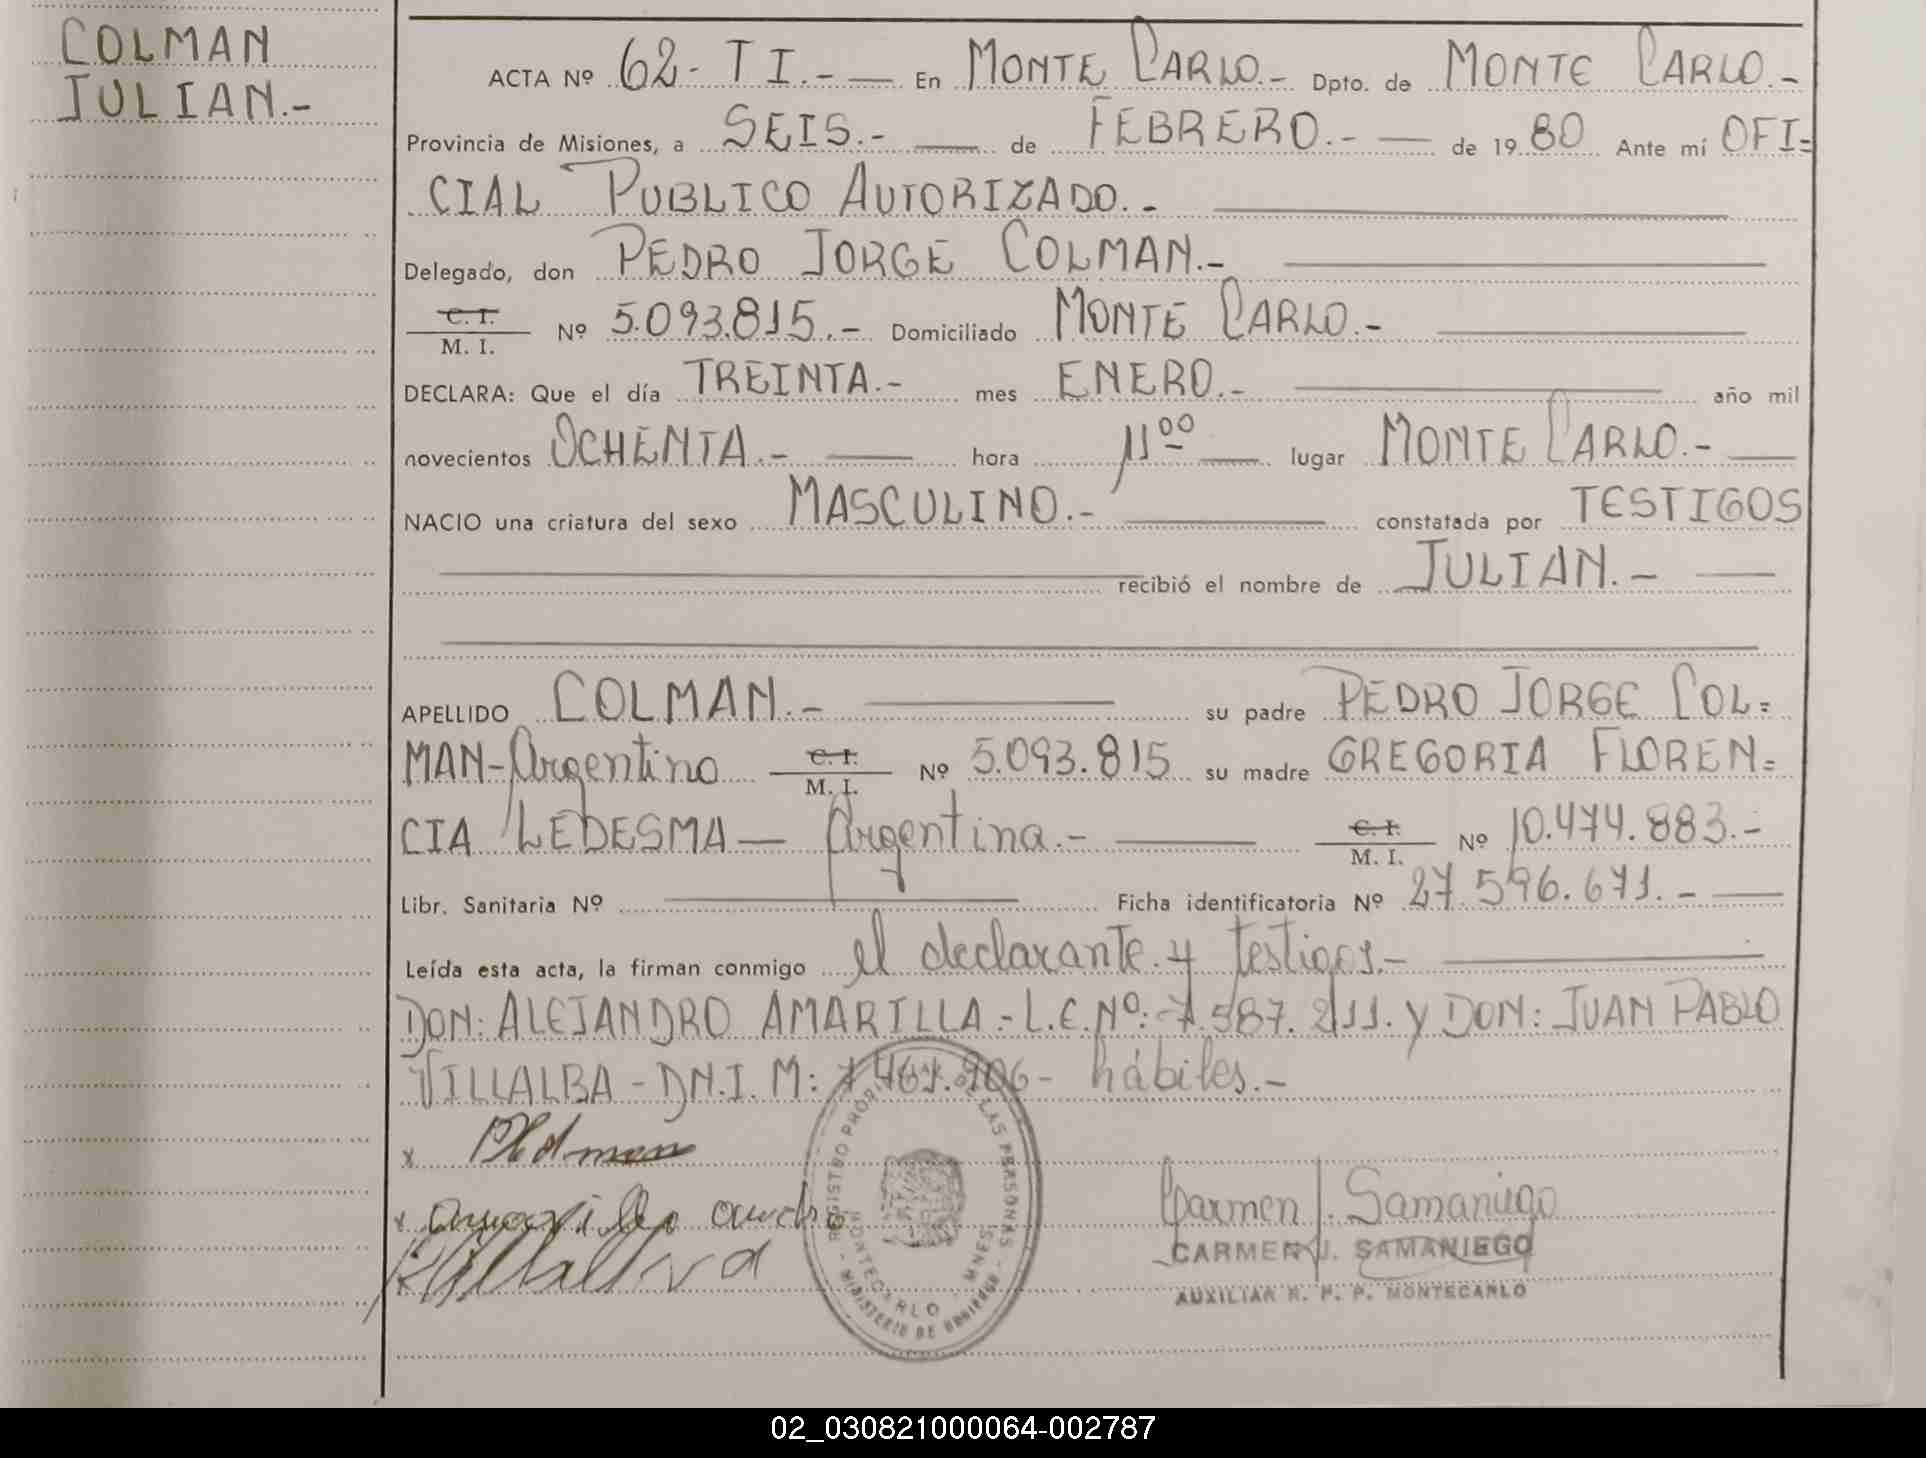 COLMAN
JULIAN.-
ACTA Nº 62- T I.- En MONTE CARLO.- Dpto. de MONTE CARLO.-
Provincia de Misiones, a SEIS.- de FEBRERO.- de 1980 Ante mí OFI=
CIAL PUBLICO AUTORIZADO.-
Delegado, don PEDRO JORGE COLMAN.-
C. I.
M. I. Nº 5.093.815.- Domiciliado MONTE CARLO.-
DECLARA: Que el día TREINTA.- mes ENERO.- año mil
novecientos OCHENTA.- hora 11⁰⁰ lugar MONTE CARLO.-
NACIO una criatura del sexo MASCULINO.- constatada por TESTIGOS
recibió el nombre de JULIAN.-
APELLIDO COLMAN.- su padre PEDRO JORGE COL=
MAN-Argentino C. I. M. I. Nº 5.093.815 su madre GREGORIA FLOREN=
CIA LEDESMA- Argentina.- C. I. M. I. Nº 10.474.883.-
Libr. Sanitaria Nº Ficha identificatoria Nº 27.596.671.-
Leída esta acta, la firman conmigo el declarante y testigos.-
DON: ALEJANDRO AMARILLA.-L.E.Nº: 7.587.211. y DON: JUAN PABLO
VILLALBA-DN.I. M: 7.461.906- hábiles.-
x
x
REGISTRO PROVINCIAL DE LAS PERSONAS
MONTECARLO - MNES.
- MINISTERIO DE GOBIERNO -
Carmen J. Samaniego
CARMEN J. SAMANIEGO
AUXILIAR R. P. P. MONTECARLO
02_030821000064-002787